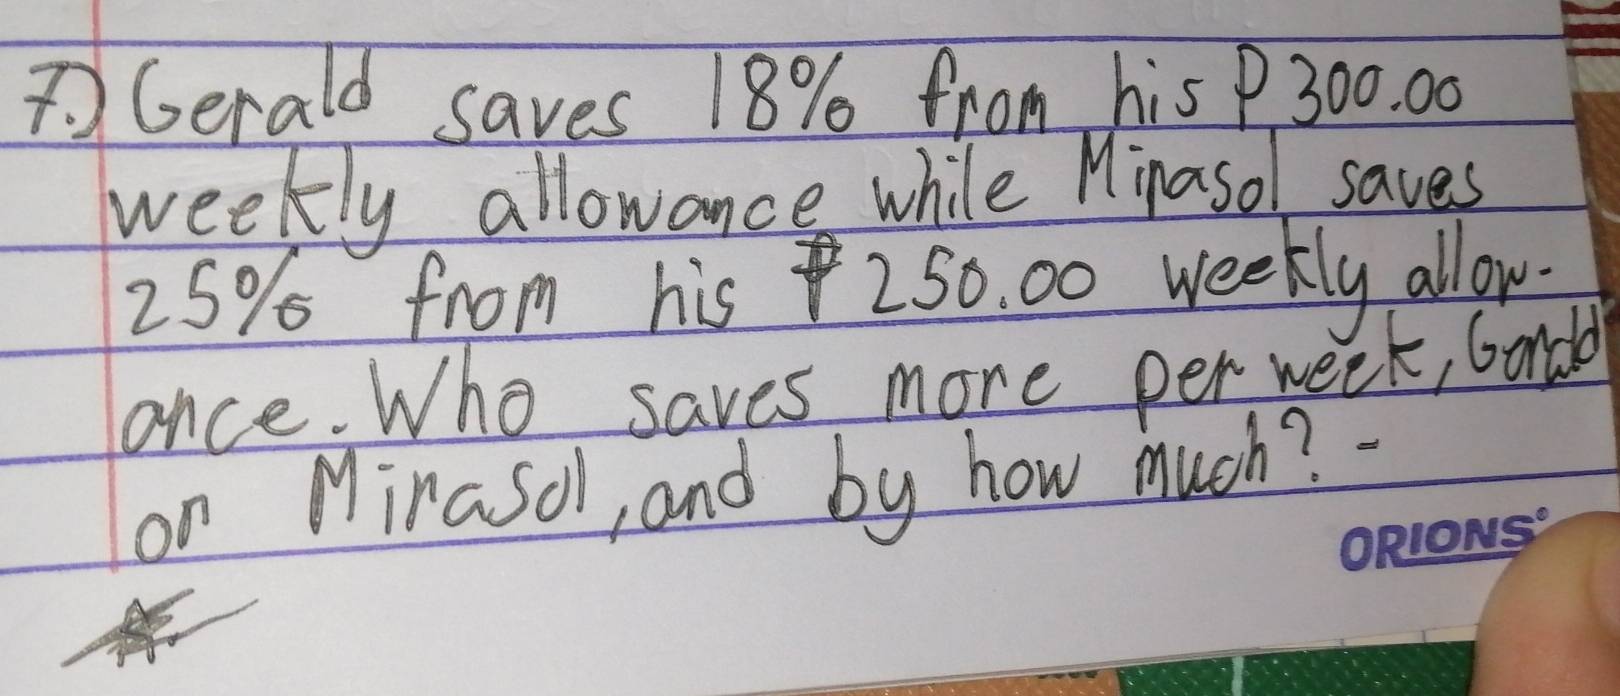 7.) Gerald saves 18% from his P 300.00
weekly allowance while Mirasol saves
25% from his ₱ 250.00 weekly allow-
ance. Who saves more per week, Gerald
or Mirasol, and by how much? -
ORIONS